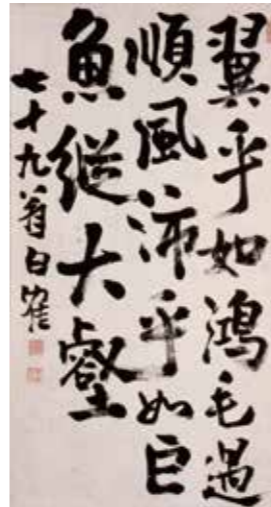 翼乎如鴻毛過
順風沛乎如巨
魚縱大壑
七十九翁白雀